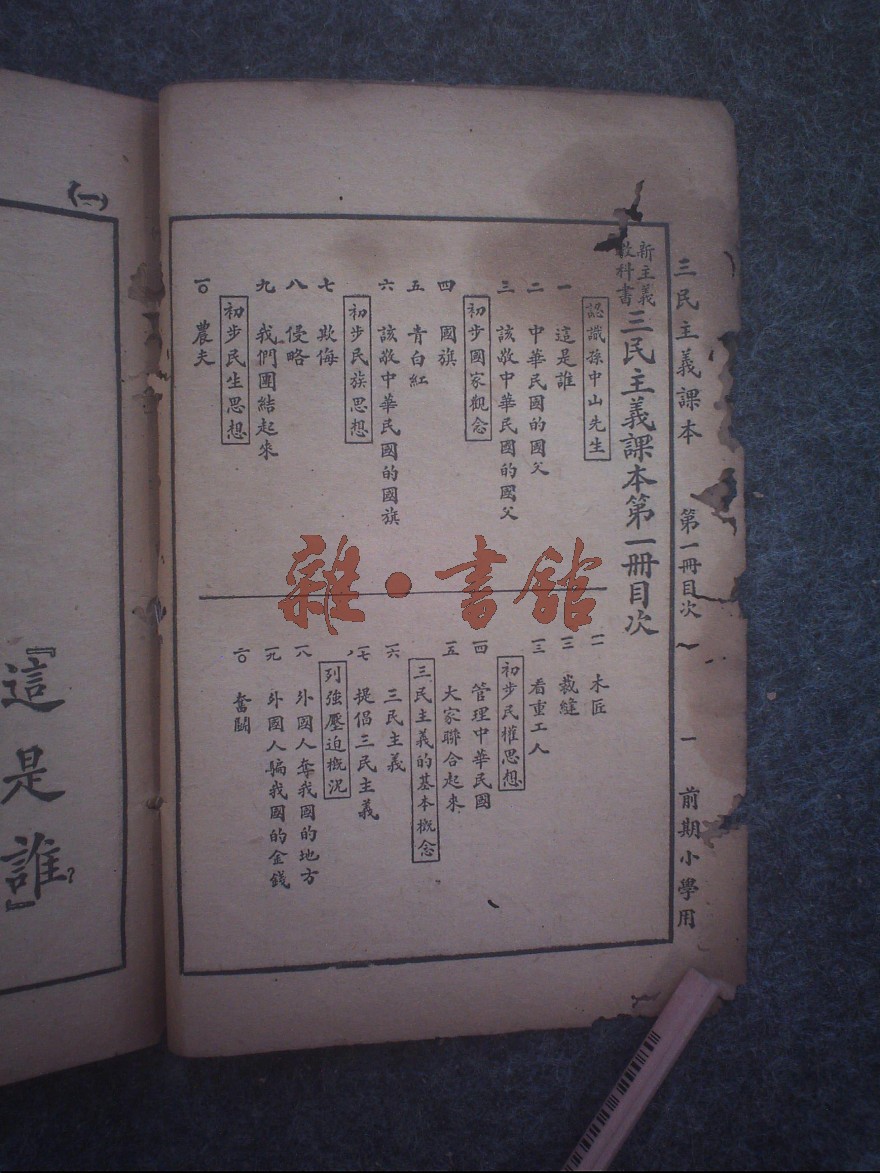 三民主義課本 第一冊目次 一 前期小學用
新主義教科書 三民主義課本第一冊目次
認識孫中山先生
一 這是誰
二 中華民國的國父
三 該敬中華民國的國父
初步國家觀念
四 國旗
五 青白紅
六 該敬中華民國的國旗
初步民族思想
七 欺侮
八 侵略
九 我們團結起來
初步民生思想
一〇 農夫
一一 木匠
一二 裁縫
一三 看重工人
初步民權思想
一四 管理中華民國
一五 大家聯合起來
三民主義的基本概念
一六 三民主義
一七 提倡三民主義
列強壓迫概況
一八 外國人奪我國的地方
一九 外國人騙我國的金錢
二〇 奮鬭
(一)
『這是誰?』
雜·書館